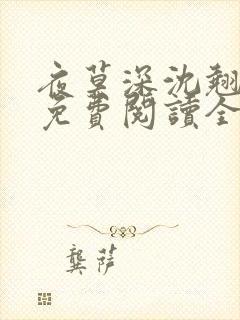 夜草深沈翘
免費閱讀全
龔萨